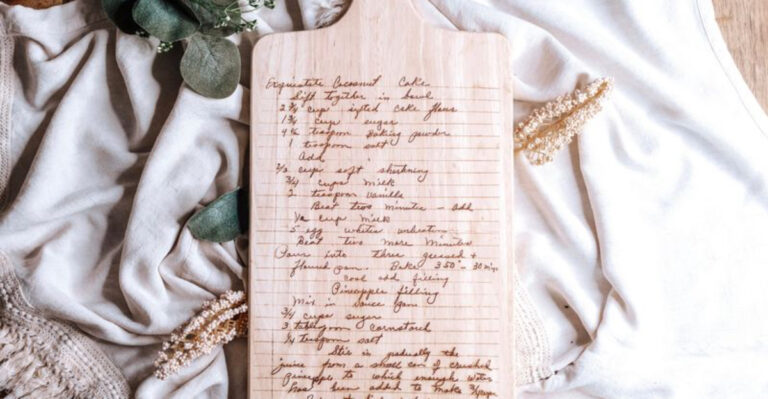 Exquisite Cocoanut Cake
Sift together in bowl
2 3/4 cup sifted cake flour
1 3/4 cup sugar
4 1/2 teaspoon baking powder
1 teaspoon salt
Add
2/3 cup soft shortning
3/4 cup milk
2 teaspoon vanilla
Beat two minutes - add
1/2 cup milk
5 egg whites unbeaten
Beat two more minutes
Pour into three greased +
floured pan. Bake 350° - 30 min
cool add filling
Pineapple filling
Mix in sauce pan
3/4 cup sugar
3 tablespoon cornstarch
1/4 teaspoon salt
Stir in gradually the
juice from a small can of crushed
Pineapple to which enough water
has been added to make 3/4